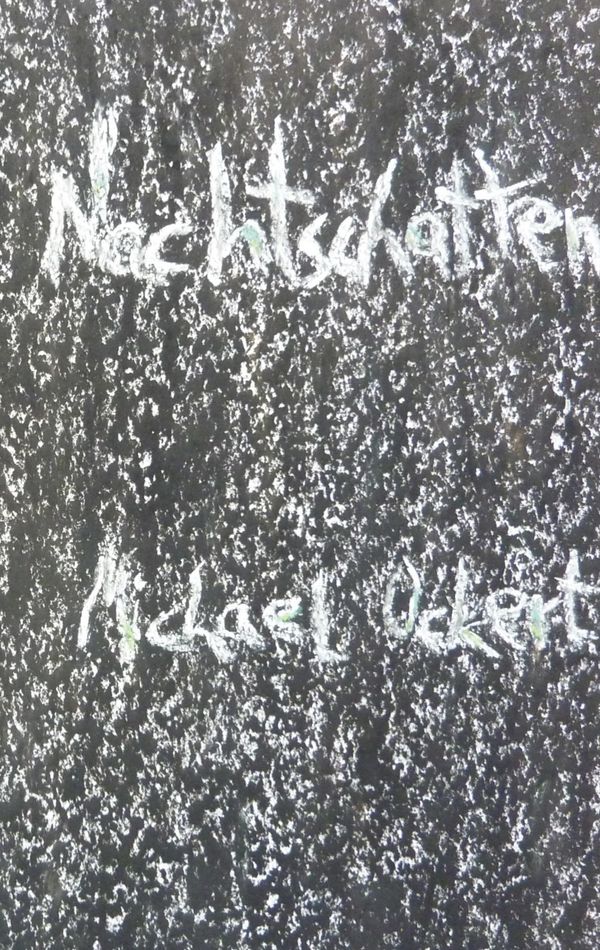 Nachtschatten
Michael Ockert